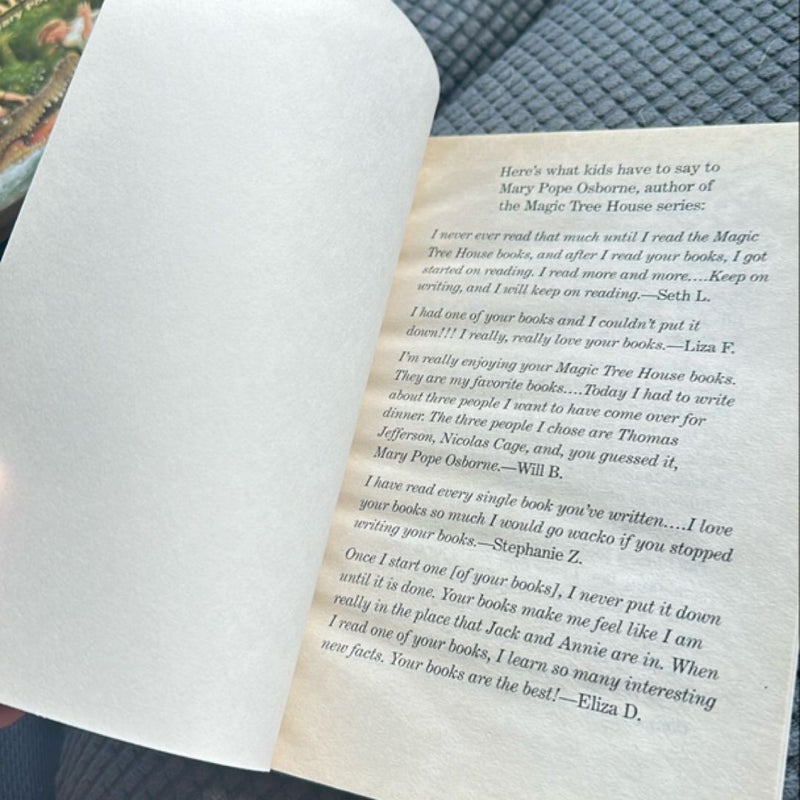 Here's what kids have to say to
Mary Pope Osborne, author of
the Magic Tree House series:
I never ever read that much until I read the Magic
Tree House books, and after I read your books, I got
started on reading. I read more and more....Keep on
writing, and I will keep on reading.—Seth L.
I had one of your books and I couldn't put it
down!!! I really, really love your books.—Liza F.
I'm really enjoying your Magic Tree House books.
They are my favorite books....Today I had to write
about three people I want to have come over for
dinner. The three people I chose are Thomas
Jefferson, Nicolas Cage, and, you guessed it,
Mary Pope Osborne.—Will B.
I have read every single book you've written....I love
your books so much I would go wacko if you stopped
writing your books.—Stephanie Z.
Once I start one [of your books], I never put it down
until it is done. Your books make me feel like I am
really in the place that Jack and Annie are in. When
I read one of your books, I learn so many interesting
new facts. Your books are the best!—Eliza D.